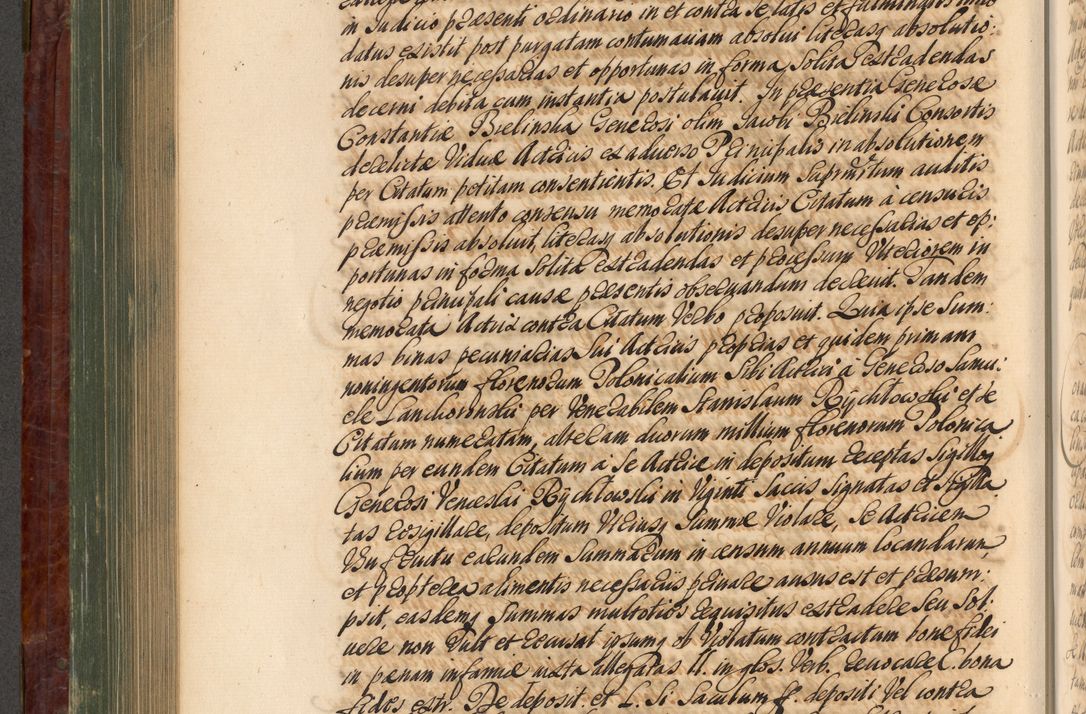 in Judicio præsenti ordinario in et contra se latis et fulminatis
datus existit post purgatam contumaciam absolui literasq absolutio:
nis desuper necessarias et opportunas in forma solita extradendas
decerni debita cum instantia postulauit. In præsentia Generosæ
Constantiæ Bielinska Generosi olim Jacobi Bielinski Consortis
derelictæ Viduæ Actricis ex aduerso Principalis in absolutionem
per Citatum petitam consentientis. Et Judicium Suprmtum auditis
præmissis attento consensu memoratæ Actricis Citatum à censuris
præmissis absoluit, literasq absolutionis desuper necessarias et op:
portunas in forma solita extradendas et processum Vlteriorem in
negotio principali causæ præsentis obseruandum decreuit. Tandem
memorata Actrix contra Citatum Verbo proposuit. Quia ipse Sum:
mas binas pecuniarias sui Actricis proprias et quidem primam
noningentorum florenorum Polonicalium Sibi Actrici à Generoso Samu:
ele Lanckoronski per Venerabilem Stanislaum Rychłowski et se
Citatum numeratam, alteram duorum millium florenorum Polonica
lium per eundem Citatum à se Actrice in depositum receptas sigilloq
Generosi Venceslai Rychłowski in Viginti saccis signatas et sigilla
tas resigillare, depositum Vtriusq Summæ Violare, se Actricem
Vsufructu earundem Summarum in censum annuum locandarum
et propterea alimentis necessariis priuare ausus est et præsum:
psit, easdemq Summas multoties requisitus extradere seu sol:
uere non Vult et recusat ipsumq ob Violatum contractum bonæ fidei
in pænam infamiæ iuxta allegatas ll. in glos. Verb. reuocare C. bona
fides extr. De deposit. et L. Si Saculum ff. depositi Vel contra